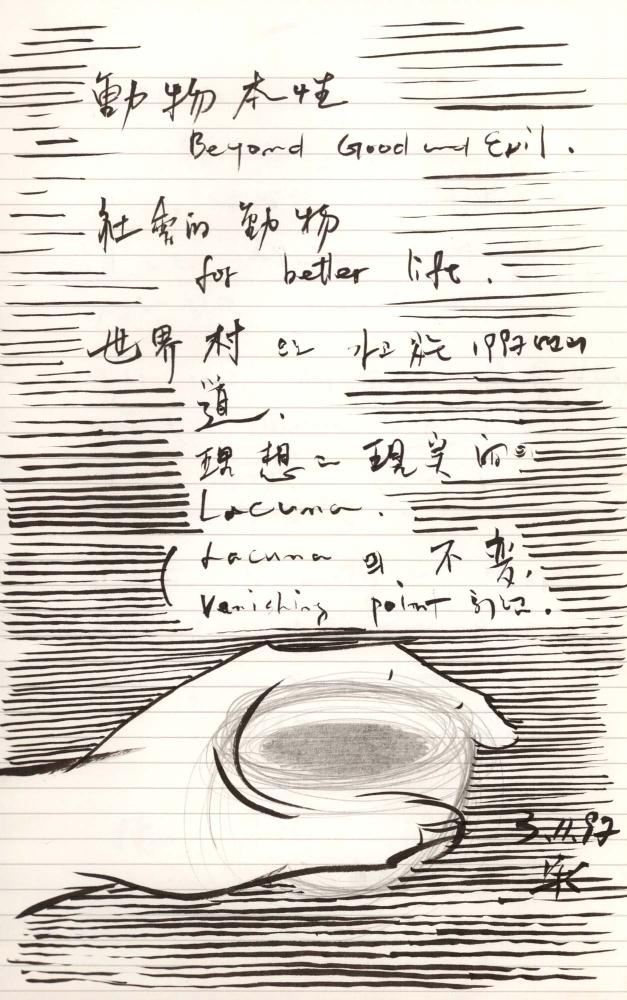 動物本性
Beyond Good and Evil.
社會的 動物
for better life.
世界村 으로 가고 있는 1997년의
道.
理想과 現実的인
Lacuna.
(Lacuna의 不変,
Vanishing point
3.11.97